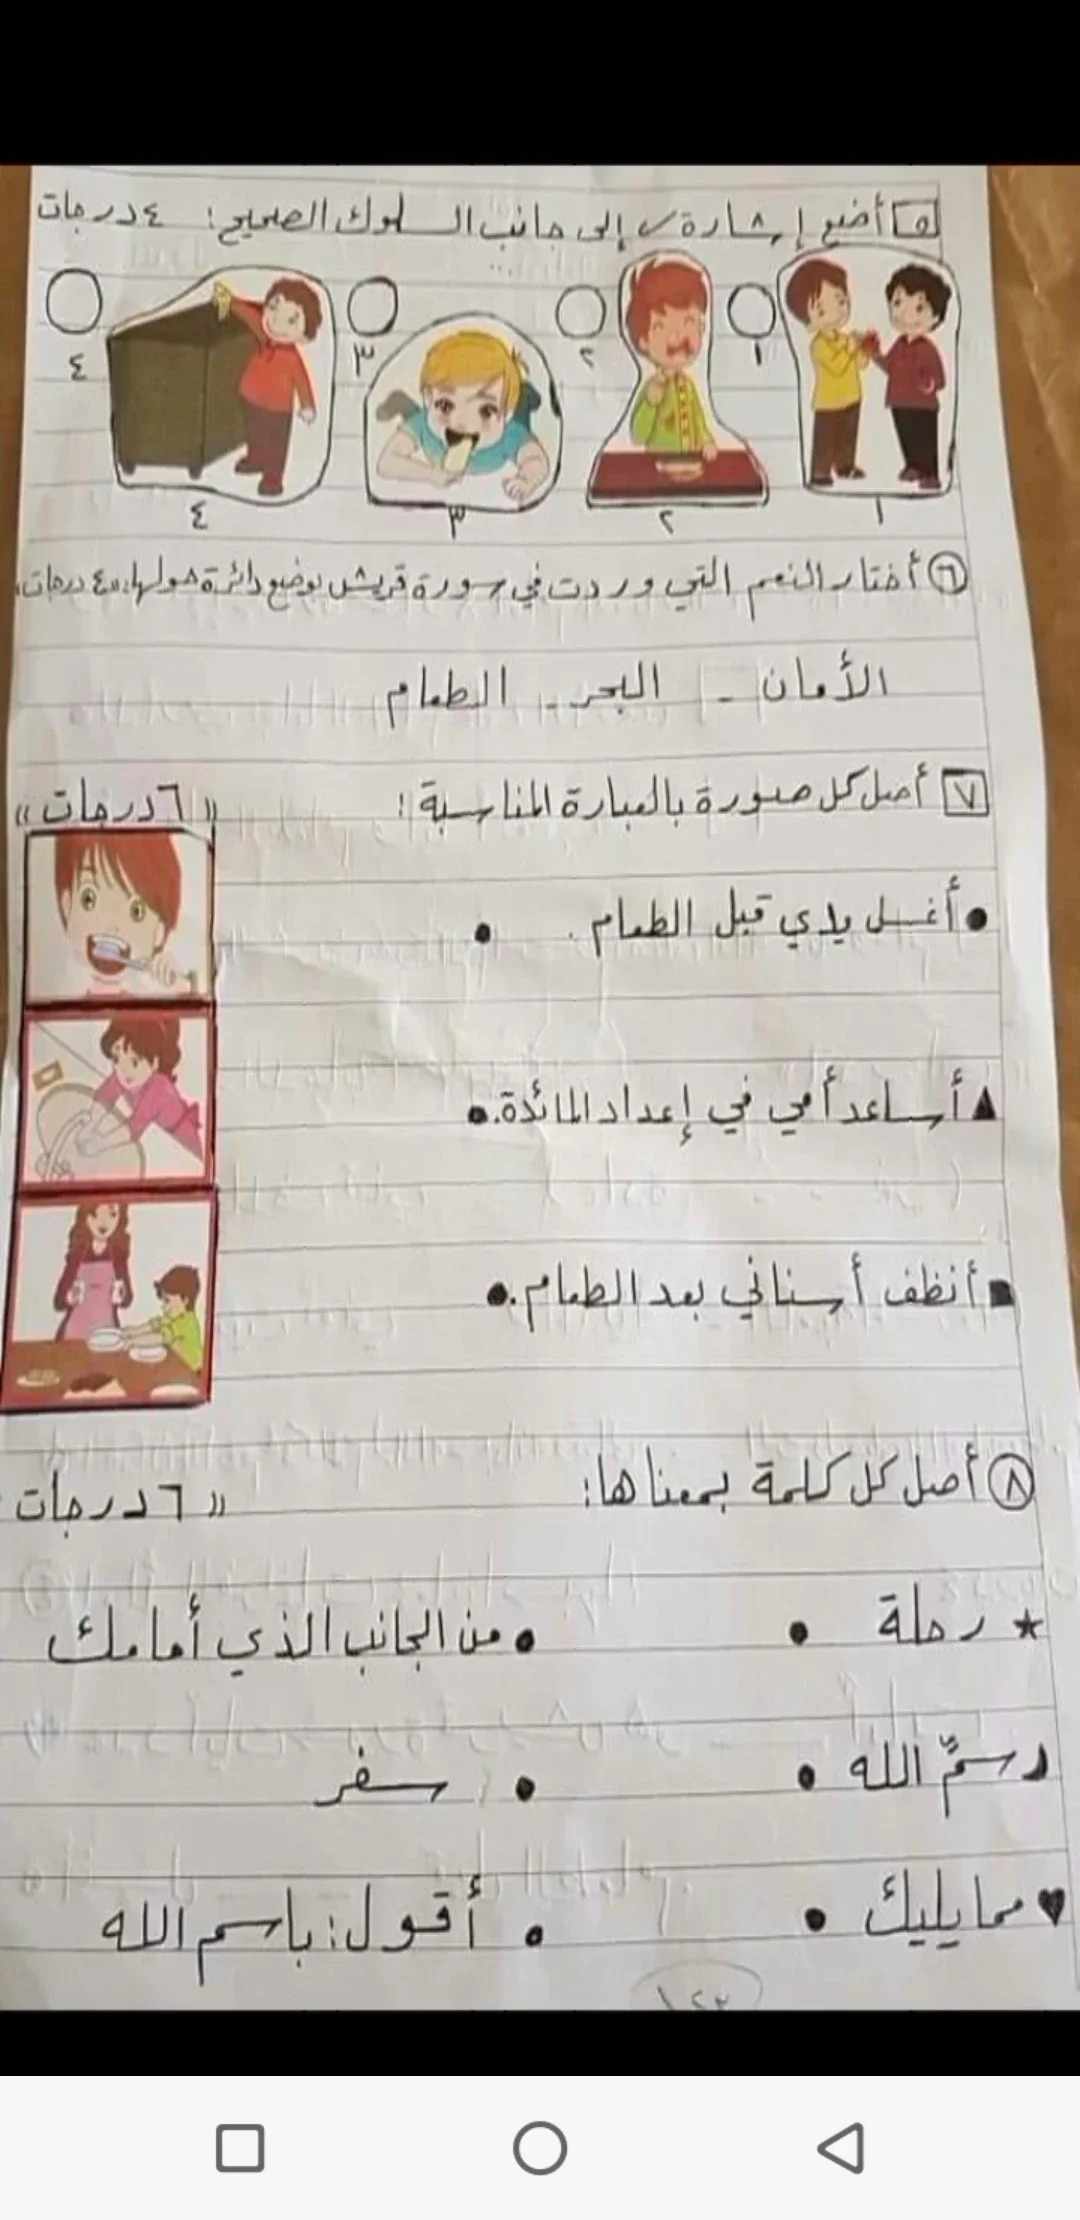 ٥ أضع إشارة ✓ إلى جانب السلوك الصحيح: ٤ درجات
١ ٢ ٣ ٤
١ ٢ ٣ ٤
٦ أختار النعم التي وردت في سورة قريش بوضع دائرة حولها: ٤ درجات
الأمان - البحر - الطعام
٧ أصل كل صورة بالعبارة المناسبة: «٦ درجات»
• أغسل يدي قبل الطعام. •
▲ أساعد أمي في إعداد المائدة. •
■ أنظف أسناني بعد الطعام. •
٨ أصل كل كلمة بمعناها: «٦ درجات
★ رحلة • • من الجانب الذي أمامك
سمِّ الله • • سفر
♥ مما يليك • • أقول: باسم الله